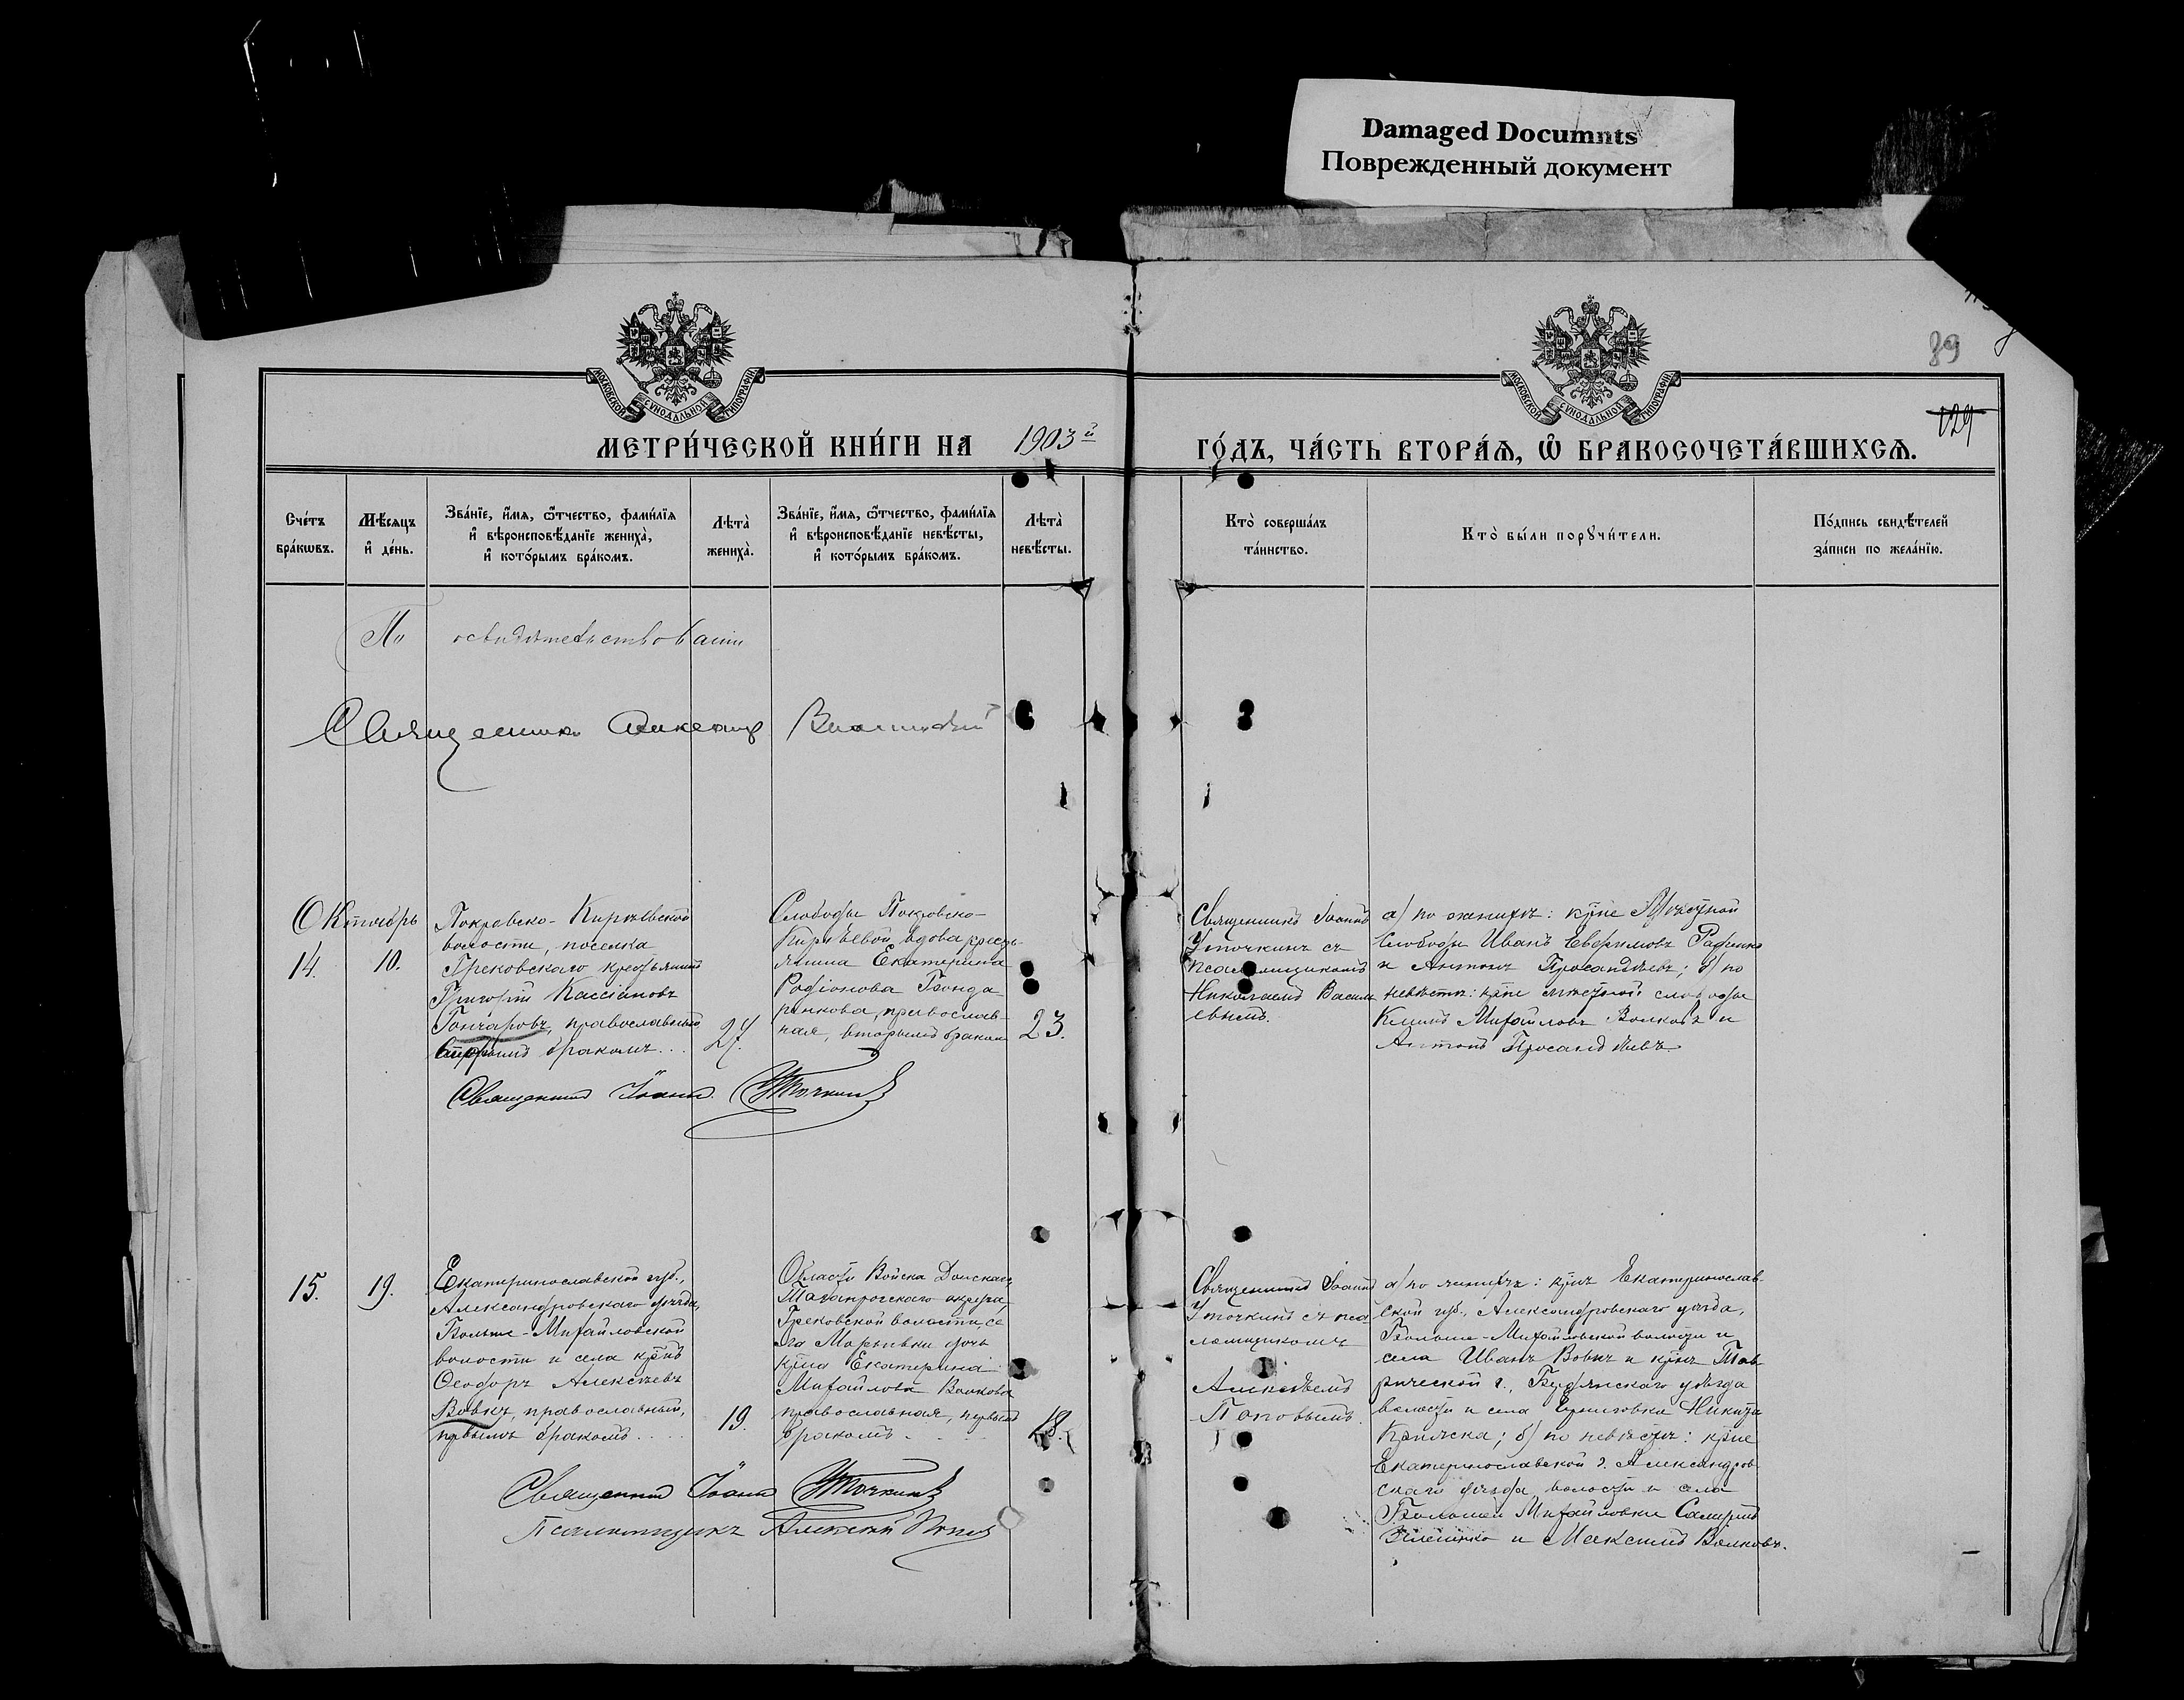 Damaged Documnts
Поврежденный документ
89
129
МОСКОВСКОЙ СѴНОДАЛЬНОЙ ТИПОГРАФІИ
МОСКОВСКОЙ СѴНОДАЛЬНОЙ ТИПОГРАФІИ
МЕТРИ́ЧЕСКОЙ КНИ́ГИ НА 1903й ГО́ДЪ, ЧА́СТЬ ВТОРА́Ѧ, Ѽ БРАКОСОЧЕТА́ВШИХСѦ.
Сче́тъ
бра́кѡвъ.
Мѣ́сяцъ
и҆ де́нь.
Зва́нїе, и҆́мя, ѻ҆́тчество, фами́лїя
и҆ вѣроисповѣ́данїе жениха̀,
и҆ кото́рымъ бра́комъ.
Лѣта̀
жениха̀.
Зва́нїе, и҆́мя, ѻ҆́тчество, фами́лїя
и҆ вѣроисповѣ́данїе невѣ́сты,
и҆ кото́рымъ бра́комъ.
Лѣта̀
невѣ́сты.
Кто̀ соверша́лъ
та́инство.
Кто̀ бы́ли порꙋчи́тели.
По́дпись свидѣ́телей
за́писи по жела́нїю.
По освидѣтельствованіи
Священникъ
Октябрь
14.
10.
Покровско-Кирѣевской
волости, поселка
Грековскаго крестьянинъ
Григорій Кассіановъ
Гончаровъ, православный
вторымъ бракомъ...
27.
Слободы Покровско-
Кирѣевой, вдова кресть-
янина Екатерина
Родіонова Бонда-
ренкова, православ-
ная, вторымъ бракомъ
23.
Священникъ Іоаннъ
Уточкинъ съ
псаломщикомъ
Николаемъ Василь
евымъ.
а) по женихѣ: кр̃не мѣстной
слободы Иванъ Евфимовъ
и Антонъ; б) по
невѣстѣ: кр̃не мѣстной слободы
Климъ Михайловъ Волковъ и
Антонъ
Священникъ Іоаннъ Уточкинъ
15.
19.
Екатеринославской губ.,
Александровскаго уѣзда,
Больше-Михайловской
волости и села кр̃нъ
Ѳеодоръ Алексѣевъ
Вовкъ, православный,
первымъ бракомъ....
19.
Области Войска Донскаго,
Таганрогскаго округа,
Грековской волости, се
ла Марьевки дочь
кр̃на Екатерина
Михайлова Волкова
православная, первымъ
бракомъ.
18.
Священникъ Іоаннъ
Уточкинъ съ пса
ломщикомъ
Алексѣемъ
Поповымъ.
а) по женихѣ: кр̃нъ Екатеринослав-
ской губ., Александровскаго уѣзда,
Больше-Михайловской волости и
села Иванъ Вовкъ и кр̃нъ Тав-
рической г., Бердянскаго уѣзда
волости и села Черниговки Никита
б) по невѣстѣ: кр̃не
Екатеринославской г. Александров-
скаго уѣзда, волости и села
Большой Михайловки
и Максимъ Волковъ.
Священникъ Іоаннъ Уточкинъ
Псаломщикъ Алексѣй Поповъ